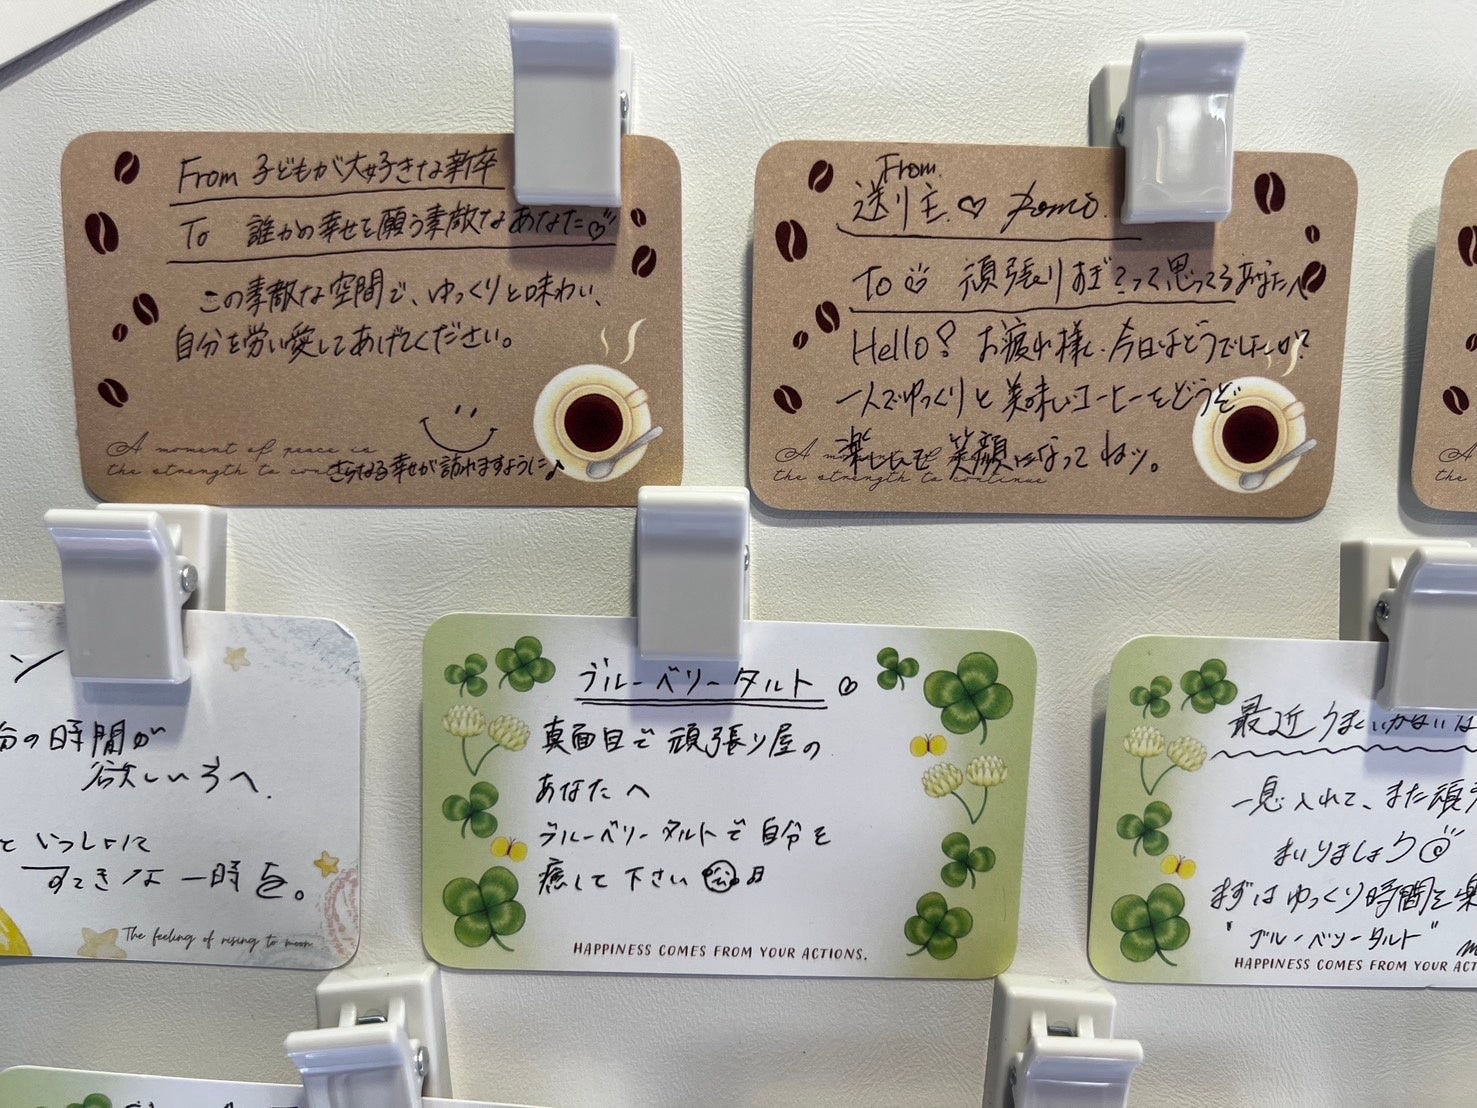 From 子どもが大好きな新卒
To 誰かの幸せを願う素敵なあなた♡
この素敵な空間で、ゆっくりと味わい、
自分を労い愛してあげてください。
A moment of peace is
the strength to con
さらなる幸せが訪れますように♪
From.
送り主.♡
To 頑張りすぎ?って思ってるあなたへ
Hello! お疲れ様、今日はどうでしたか?
一人でゆっくりと美味しいコーヒーをどうぞ
楽しんで笑顔になってねッ。
A moment of
the strength to continue
A
the
ン
分の時間が
欲しい方へ.
といっしょに
すてきな一時を。
The feeling of rising to moon
ブルーベリータルト ♡
真面目で頑張り屋の
あなたへ
ブルーベリータルトで自分を
癒して下さい
HAPPINESS COMES FROM YOUR ACTIONS.
最近うまくいかないは
一息入れて、また頑
まいりましょう
まずはゆっくり時間を楽
"ブルーベリータルト"
HAPPINESS COMES FROM YOUR ACT